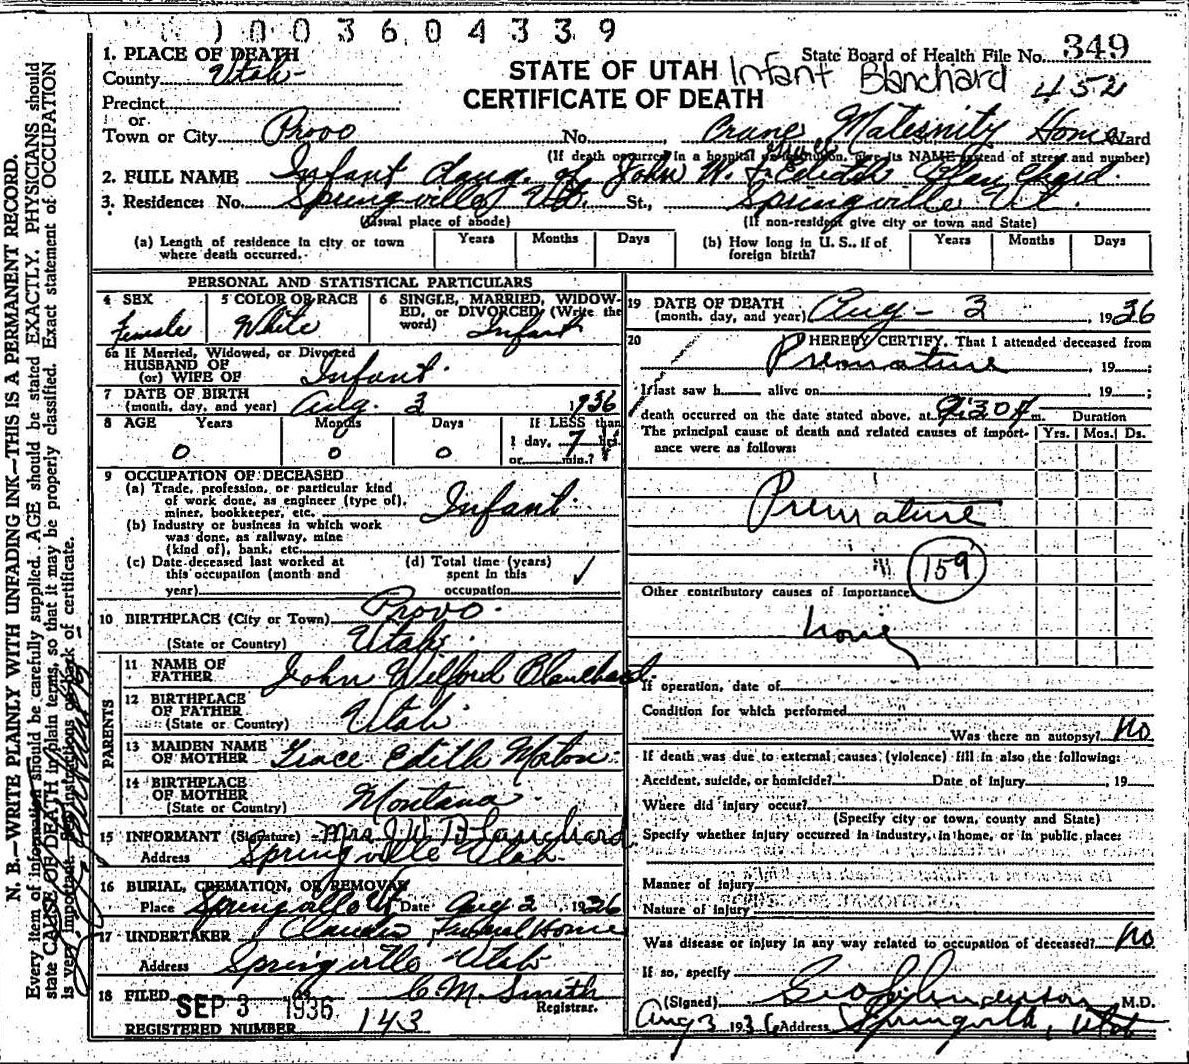 1003604339
1. PLACE OF DEATH
State Board of Health File No. 349
County Utah
STATE OF UTAH Infant Blanchard 452
CERTIFICATE OF DEATH
Precinct
or
Town or City Provo No. Crane Maternity Home St. Ward
(If death occurred in a hospital or institution, give its NAME instead of street and number)
2. FULL NAME Infant daug. of John W. & Grace Edith Blanchard
3. Residence: No. Springville Ut. St., Springville Ut.
(Usual place of abode) (If non-resident give city or town and State)
(a) Length of residence in city or town where death occurred. Years Months Days (b) How long in U. S., if of foreign birth? Years Months Days
PERSONAL AND STATISTICAL PARTICULARS
4 SEX Female
5 COLOR OR RACE White
6 SINGLE, MARRIED, WIDOWED, OR DIVORCED (Write the word) Infant
6a If Married, Widowed, or Divorced
HUSBAND OF
(or) WIFE OF Infant
7 DATE OF BIRTH
(month, day, and year) Aug. 3 1936
8 AGE Years Months Days If LESS than
0 0 0 1 day, 7 hrs.
or min.?
9 OCCUPATION OF DECEASED
(a) Trade, profession, or particular kind
of work done, as engineer (type of),
miner, bookkeeper, etc. Infant
(b) Industry or business in which work
was done, as railway, mine
(kind of), bank, etc.
(c) Date deceased last worked at
this occupation (month and
year)
(d) Total time (years)
spent in this
occupation ✓
10 BIRTHPLACE (City or Town) Provo
(State or Country) Utah
PARENTS
11 NAME OF
FATHER John Wilford Blanchard
12 BIRTHPLACE
OF FATHER
(State or Country) Utah
13 MAIDEN NAME
OF MOTHER Grace Edith Morton
14 BIRTHPLACE
OF MOTHER
(State or Country) Montana
15 INFORMANT (Signature) Mrs. J. W. Blanchard
Address Springville Utah
16 BURIAL, CREMATION, OR REMOVAL
Place Springville Ut Date Aug 3 1936
17 UNDERTAKER Claudin Funeral Home
Address Springville Utah
18 FILED SEP 3 1936 C M. Smith
Registrar.
REGISTERED NUMBER 143
19 DATE OF DEATH
(month, day, and year) Aug - 3, 1936
20 I HEREBY CERTIFY, That I attended deceased from
Premature, 19
I last saw h alive on , 19
death occurred on the date stated above, at 9:30 A m. Duration
The principal cause of death and related causes of importance were as follows: Yrs. Mos. Ds.
Premature
159
Other contributory causes of importance:
None
If operation, date of
Condition for which performed
Was there an autopsy? No
If death was due to external causes (violence) fill in also the following:
Accident, suicide, or homicide? Date of injury , 19
Where did injury occur?
(Specify city or town, county and State)
Specify whether injury occurred in industry, in home, or in public place:
Manner of injury
Nature of injury
Was disease or injury in any way related to occupation of deceased? No
If so, specify
(Signed) Geo Anderson M.D.
Aug 3 1936 Address Springville, Utah
N. B.—WRITE PLAINLY WITH UNFADING INK—THIS IS A PERMANENT RECORD.
Every item of information should be carefully supplied. AGE should be stated EXACTLY. PHYSICIANS should
state CAUSE OF DEATH in plain terms, so that it may be properly classified. Exact statement of OCCUPATION
is very important. See instructions on back of certificate.